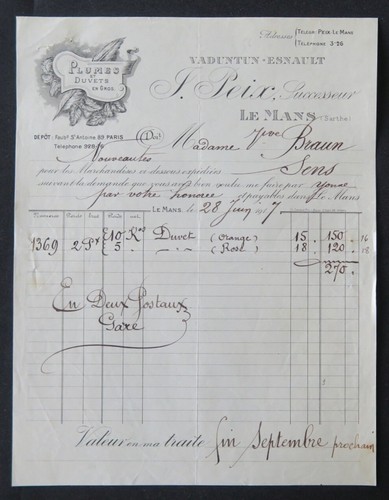 Adresses Télégr. Peix-Le Mans
Téléphone 3-26
PLUMES
ET
DUVETS
EN GROS
VADUNTUN-ESNAULT
J. Peix, Successeur
LE MANS (Sarthe)
DÉPÔT: Faubg St Antoine 89 PARIS
Téléphone
Doit
Madame Vve Braun
Nouveautés Sens
pour les Marchandises ci-dessous expédiées
suivant la demande que vous avez bien voulu me faire par Yonne
par votre honorée et payables dans Le Mans
LE MANS, le 28 Juin 1917
1369 2 Px 10 Kos Duvet (Orange) 15. 150. 16
5 - - (Rose) 18. 120. 18
270.
En Deux Postaux
Gare
Valeur en ma traite fin Septembre prochain